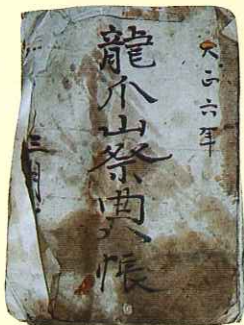 大正六年
龍爪山祭典帳
三月